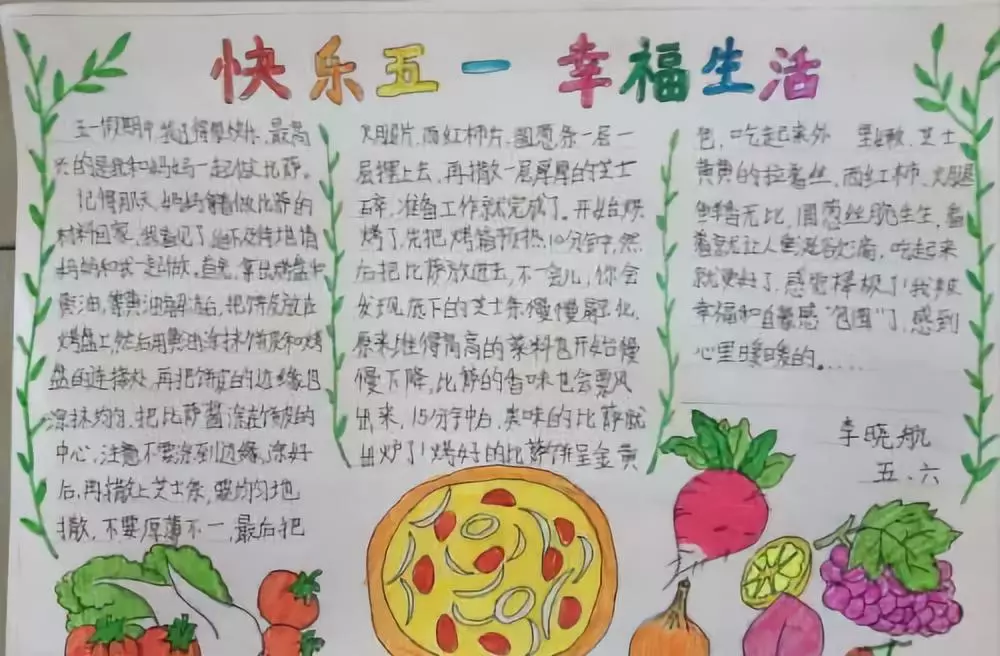 快乐五一 幸福生活
五一假期中,我过得很快乐,最高
兴的是我和妈妈一起做比萨。
记得那天,妈妈 着做比萨的
材料回家,我看见了,迫不及待地请
妈妈和我一起做。首先,拿出烤盘和
黄油,等黄油解冻后,把饼皮放在
烤盘上,然后用黄油涂抹饼底和烤
盘的连接处,再把饼皮的边缘也
涂抹均匀,把比萨酱涂在饼皮的
中心,注意不要涂到边缘,涂好
后,再撒上芝士条,要均匀地
撒,不要厚薄不一,最后把
火腿片,西红柿片,圆葱条一层一
层摆上去,再撒一层厚厚的芝士
碎,准备工作就完成了。开始烘
烤了,先把烤箱预热10分钟,然
后把比萨放进去,不一会儿,你会
发现底下的芝士条慢慢融化,
原来堆得高高的菜料也开始慢
慢下降,比萨的香味也会飘
出来,15分钟后,美味的比萨就
出炉了!烤好的比萨饼呈金黄
色,吃起来外 里嫩,芝士
黄黄的拉着丝,西红柿、火腿
鲜香无比,圆葱丝脆生生,看
着就让人 ,吃起来
就更好了,感觉棒极了!我被
幸福和自豪感“包围”了,感到
心里暖暖的......
李晓航
五、六